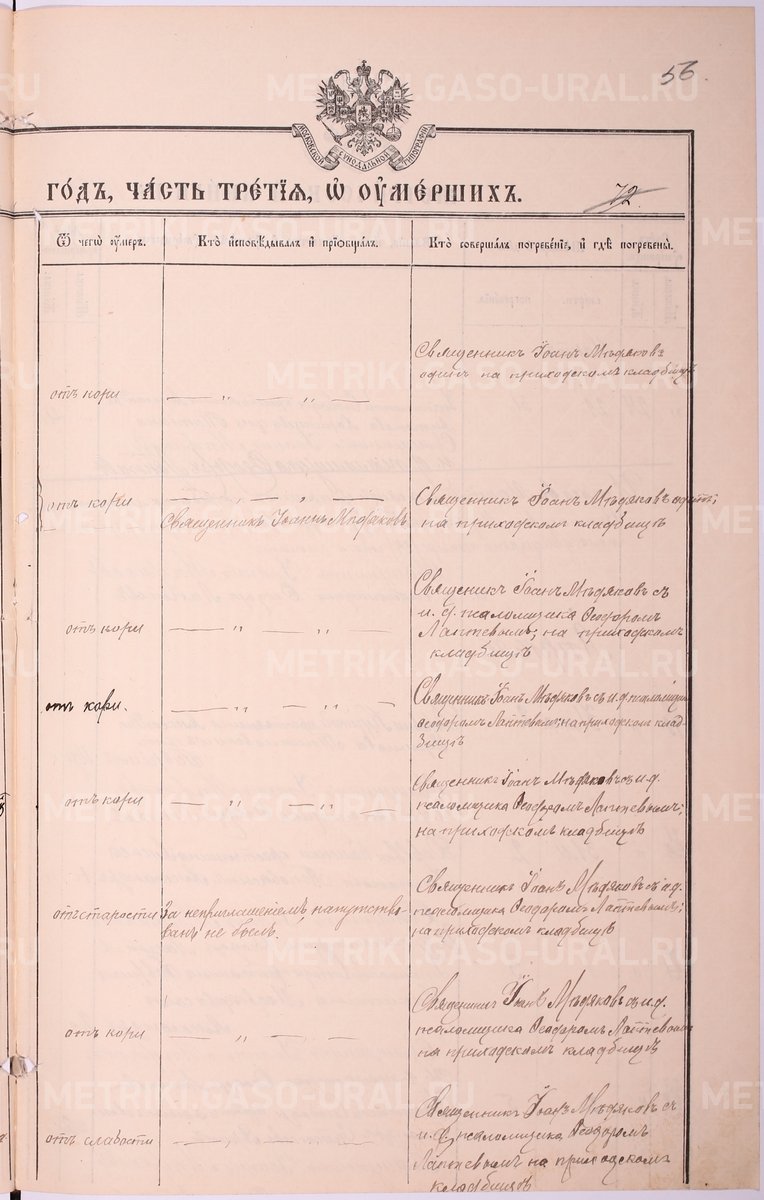 56.
МОСКОВСКОЙ СѴНОДАЛЬНОЙ ТИПОГРАФІИ
ГО́ДЪ, ЧА́СТЬ ТРЕ́ТІЯ, Ѡ ОУ҆МЕ́РШИХЪ.
72.
Ѿ чегѡ̀ оу҆́меръ.
Кто̀ и҆сповѣ́дывалъ и҆ прїѡбща́лъ.
Кто̀ соверша́лъ погребе́нїе, и҆ гдѣ̀ погребены̀.
отъ кори
— „ — „ —
Священникъ Іоаннъ Мѣдяковъ
одинъ на приходскомъ кладбищѣ
отъ кори
— „ — „ —
Священникъ Іоаннъ Мѣдяковъ
Священникъ Іоаннъ Мѣдяковъ одинъ;
на приходскомъ кладбищѣ
отъ кори
— „ — „
Священникъ Іоаннъ Мѣдяковъ съ
и. д. псаломщика Ѳеодоромъ
Лаптевымъ; на приходскомъ
кладбищѣ
отъ кори.
— „ — „ —
Священникъ Іоаннъ Мѣдяковъ съ и. д. псаломщика
Ѳеодоромъ Лаптевымъ; на приходскомъ клад-
бищѣ
отъ кори
— „ — „ —
Священникъ Іоаннъ Мѣдяковъ съ и. д.
псаломщика Ѳеодоромъ Лаптевымъ;
на приходскомъ кладбищѣ
отъ старости
За неприглашеніемъ, напутство-
ванъ не былъ.
Священникъ Іоаннъ Мѣдяковъ съ и. д.
псаломщика Ѳеодоромъ Лаптевымъ;
на приходскомъ кладбищѣ
отъ кори
— „ — „ —
Священникъ Іоаннъ Мѣдяковъ съ и. д.
псаломщика Ѳеодоромъ Лаптевымъ
на приходскомъ кладбищѣ
отъ слабости
— „ — „ —
Священникъ Іоаннъ Мѣдяковъ съ
и. д. псаломщика Ѳеодоромъ
Лаптевымъ на приходскомъ
кладбищѣ
METRIKI.GASO-URAL.RU